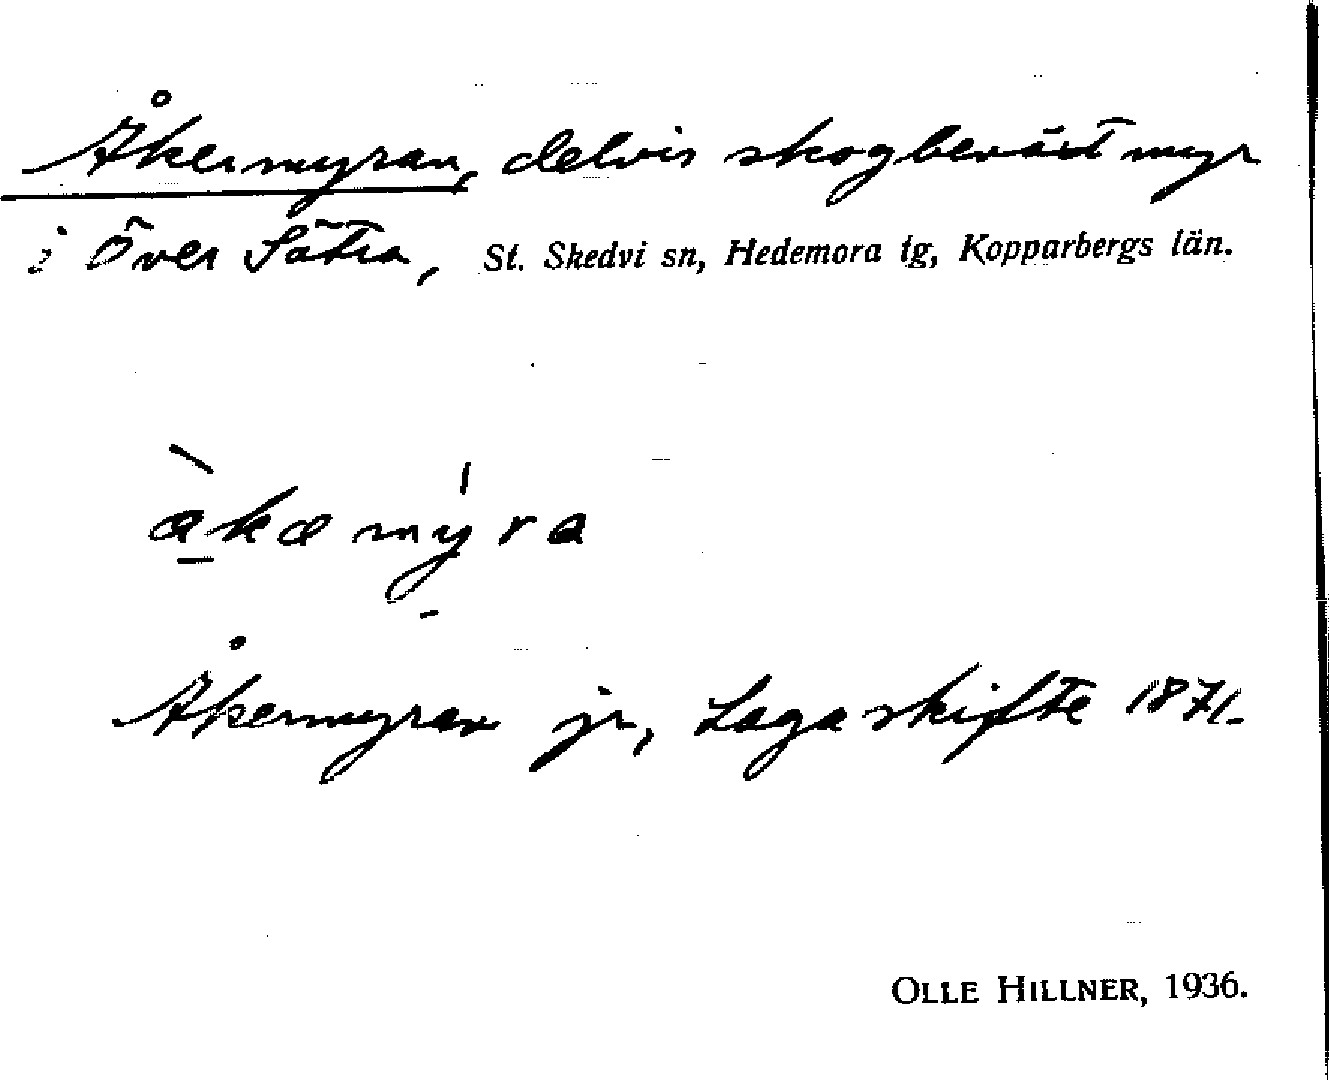 Åkermyran, delvis skogbeväxt myr
i Över Sätra, St. Skedvi sn, Hedemora tg, Kopparbergs län.
Åkermyran jr, Laga skifte 1871.
OLLE HILLNER, 1936.